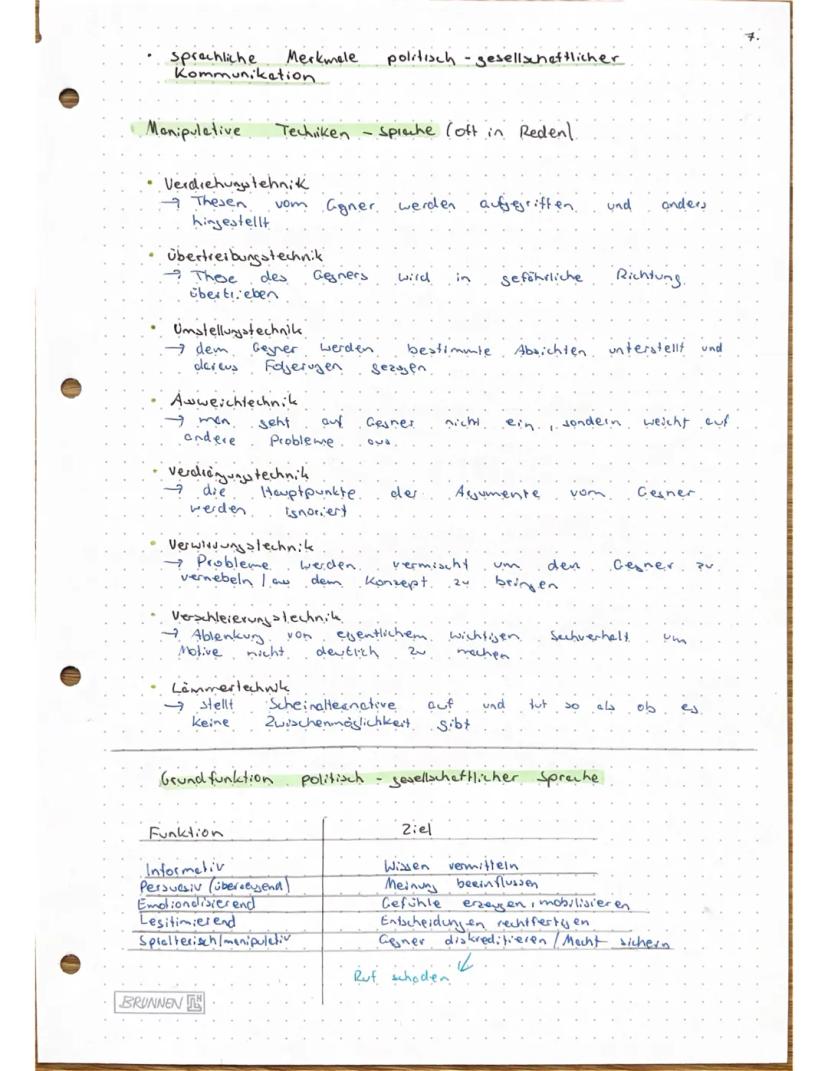 7.
• sprachliche Merkmale politisch - gesellschaftlicher
Kommunikation
Manipulative Techniken - Sprache (oft in Reden)
• Verdrehungstehnik
→ Thesen vom Ggner werden aufgegriffen und anders
hingestellt
• Übertreibungstechnik
→ These des Gegners wird in gefährliche Richtung
übertrieben
• Umstellungstechnik
→ dem Gegner werden bestimmte Absichten unterstellt und
daraus Folgerugen gezogen
• Ausweichtechnik
→ man geht auf Gegner nicht ein, sondern weicht auf
andere Probleme aus
• Verdrängungstechnik
→ die Hauptpunkte der Argumente vom Gegner
werden ignoriert
• Verwirrungstechnik
→ Probleme werden vermischt um den Gegner zu
vernebeln / aus dem Konzept zu bringen
• Verschleierungstechnik
→ Ablenkung von eigentlichem wichtigen Sachverhalt um
Motive nicht deutlich zu machen
• Lämmertechnik
→ stellt Scheinalternative auf und tut so als ob es
keine Zwischenmöglichkeit gibt
Grundfunktion politisch - gesellschaftlicher Sprache
Funktion Ziel
Informativ Wissen vermitteln
Persuasiv (überzeugend) Meinung beeinflussen
Emotionalisierend Gefühle erzeugen, mobilisieren
Legitimierend Entscheidungen rechtfertigen
Spielterisch/manipulativ Gegner diskreditieren / Macht sichern
Ruf schaden
BRUNNEN